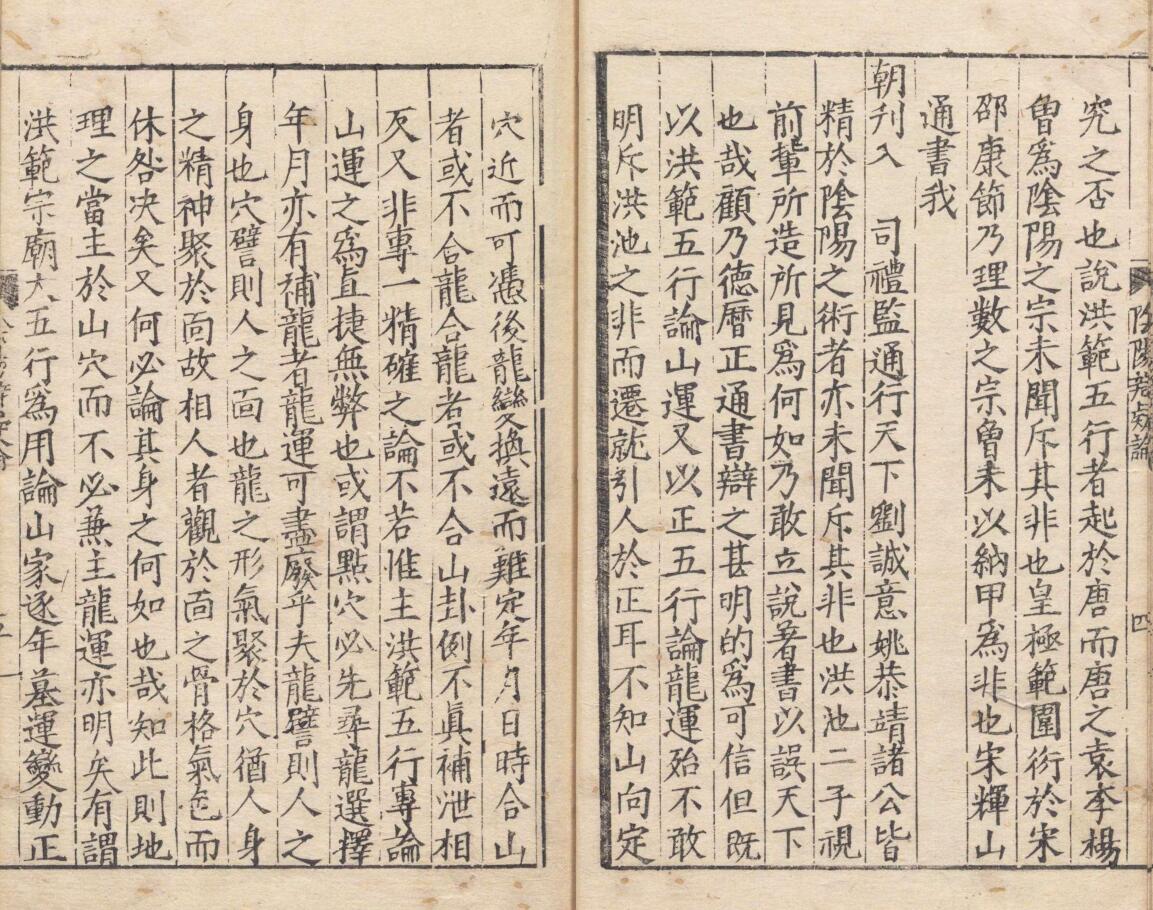 陰陽裝疑論
四
究之否也說洪範五行者起於唐而唐之袁李楊
曾爲陰陽之宗未聞斥其非也皇極範圍衍於宋
邵康節乃理數之宗曾未以納甲爲非也宋輝山
通書我
朝刋入　司禮監通行天下劉誠意姚恭靖諸公皆
精於陰陽之術者亦未聞斥其非也洪池二子視
前輩所造所見爲何如乃敢立說著書以誤天下
也哉顧乃德曆正通書辯之甚明的爲可信但既
以洪範五行論山運又以正五行論龍運殆不敢
明斥洪池之非而遷就引人於正耳不知山向定
穴近而可憑後龍變換遠而難定年月日時合山
者或不合龍合龍者或不合山卦例不眞補泄相
反又非專一精確之論不若惟主洪範五行專論
山運之爲直捷無弊也或謂點穴必先尋龍選擇
年月亦有補龍者龍運可盡廢乎夫龍譬則人之
身也穴譬則人之面也龍之形氣聚於穴猶人身
之精神聚於面故相人者觀於面之骨格氣色而
休咎决矣又何必論其身之何如也哉知此則地
理之當主於山穴而不必兼主龍運亦明矣有謂
洪範宗廟大五行爲用論山家逐年墓運變動正